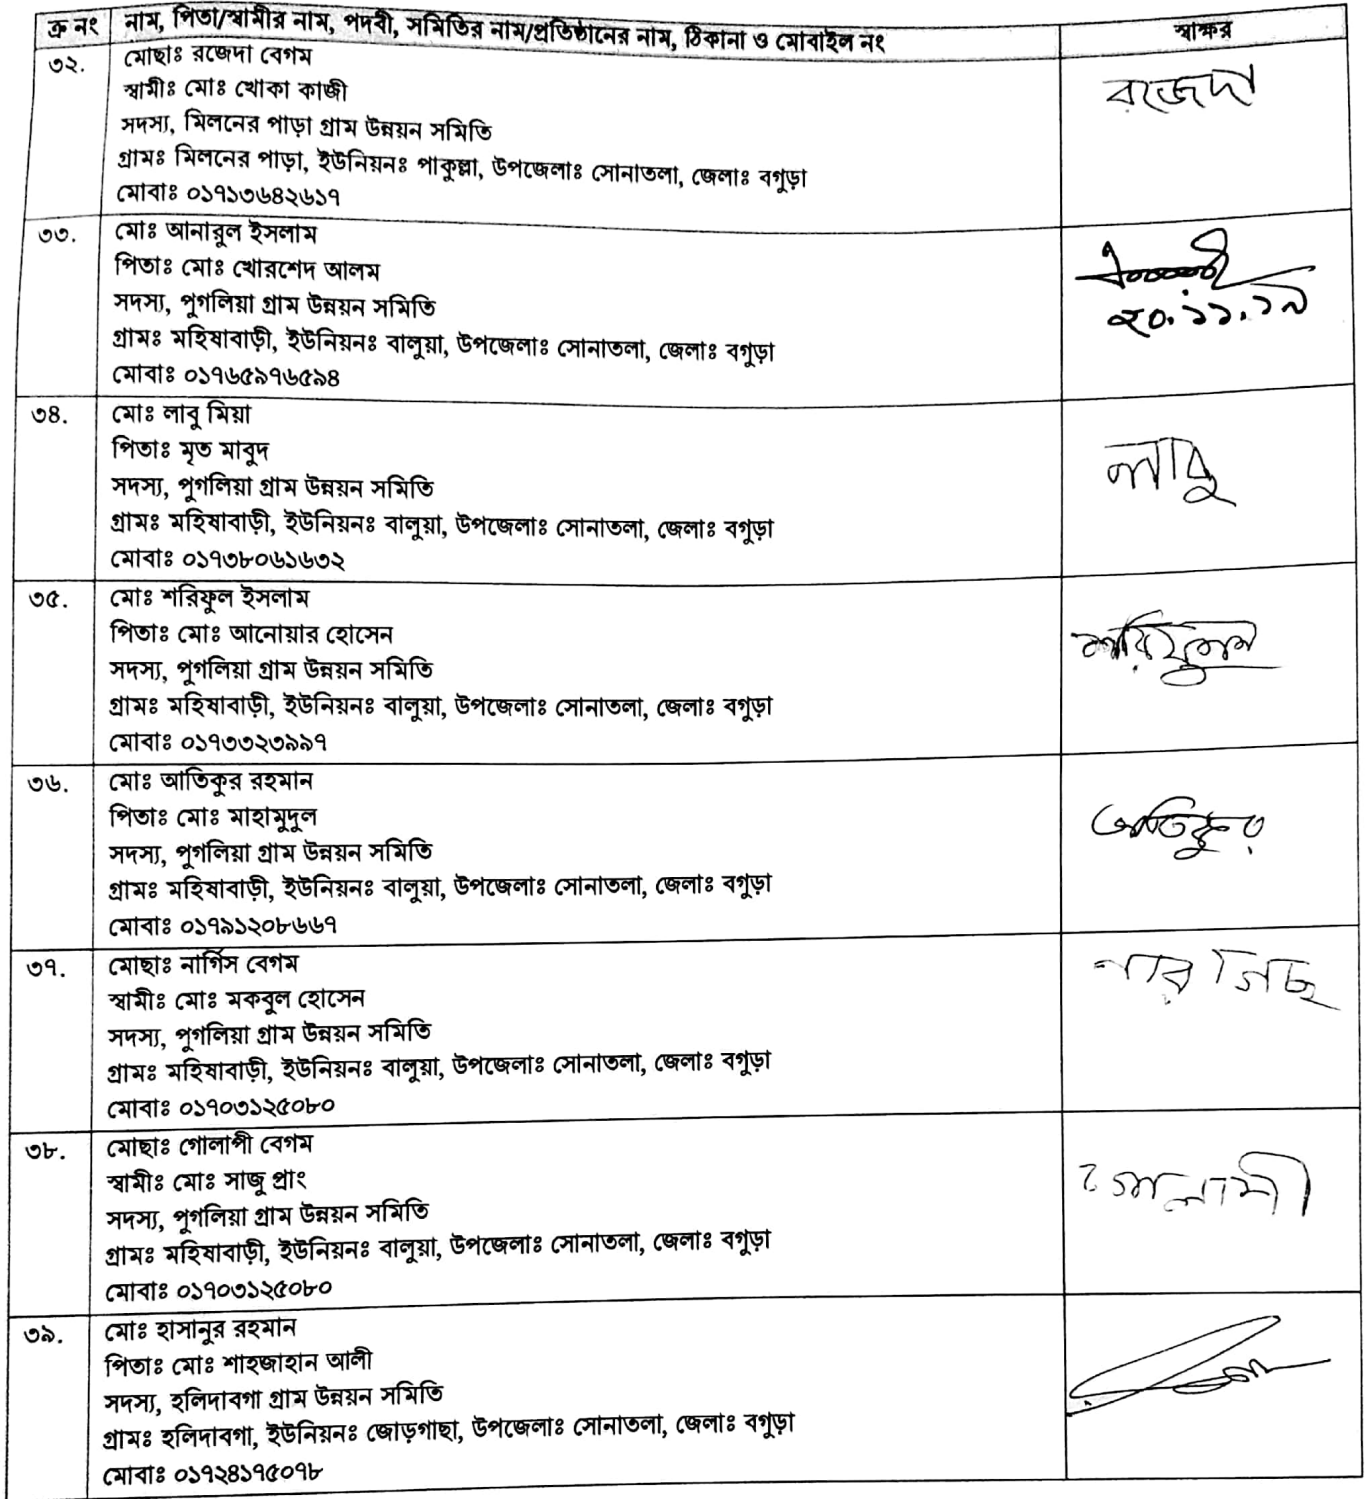 ক্র নং নাম, পিতা/স্বামীর নাম, পদবী, সমিতির নাম/প্রতিষ্ঠানের নাম, ঠিকানা ও মোবাইল নং স্বাক্ষর
৩২. মোছাঃ রজেদা বেগম
স্বামীঃ মোঃ খোকা কাজী
সদস্য, মিলনের পাড়া গ্রাম উন্নয়ন সমিতি
গ্রামঃ মিলনের পাড়া, ইউনিয়নঃ পাকুল্লা, উপজেলাঃ সোনাতলা, জেলাঃ বগুড়া
মোবাঃ ০১৭১৩৬৪২৬১৭
রজেদা
৩৩. মোঃ আনারুল ইসলাম
পিতাঃ মোঃ খোরশেদ আলম
সদস্য, পুগলিয়া গ্রাম উন্নয়ন সমিতি
গ্রামঃ মহিষাবাড়ী, ইউনিয়নঃ বালুয়া, উপজেলাঃ সোনাতলা, জেলাঃ বগুড়া
মোবাঃ ০১৭৬৫৯৭৬৫৯৪
২০.১১.১৯
৩৪. মোঃ লাবু মিয়া
পিতাঃ মৃত মাবুদ
সদস্য, পুগলিয়া গ্রাম উন্নয়ন সমিতি
গ্রামঃ মহিষাবাড়ী, ইউনিয়নঃ বালুয়া, উপজেলাঃ সোনাতলা, জেলাঃ বগুড়া
মোবাঃ ০১৭৩৮০৬১৬৩২
লাবু
৩৫. মোঃ শরিফুল ইসলাম
পিতাঃ মোঃ আনোয়ার হোসেন
সদস্য, পুগলিয়া গ্রাম উন্নয়ন সমিতি
গ্রামঃ মহিষাবাড়ী, ইউনিয়নঃ বালুয়া, উপজেলাঃ সোনাতলা, জেলাঃ বগুড়া
মোবাঃ ০১৭৩৩২৩৯৯৭
শরিফুল
৩৬. মোঃ আতিকুর রহমান
পিতাঃ মোঃ মাহামুদুল
সদস্য, পুগলিয়া গ্রাম উন্নয়ন সমিতি
গ্রামঃ মহিষাবাড়ী, ইউনিয়নঃ বালুয়া, উপজেলাঃ সোনাতলা, জেলাঃ বগুড়া
মোবাঃ ০১৭৯১২০৮৬৬৭
আতিকুর
৩৭. মোছাঃ নার্গিস বেগম
স্বামীঃ মোঃ মকবুল হোসেন
সদস্য, পুগলিয়া গ্রাম উন্নয়ন সমিতি
গ্রামঃ মহিষাবাড়ী, ইউনিয়নঃ বালুয়া, উপজেলাঃ সোনাতলা, জেলাঃ বগুড়া
মোবাঃ ০১৭০৩১২৫০৮০
নারগিছ
৩৮. মোছাঃ গোলাপী বেগম
স্বামীঃ মোঃ সাজু প্রাং
সদস্য, পুগলিয়া গ্রাম উন্নয়ন সমিতি
গ্রামঃ মহিষাবাড়ী, ইউনিয়নঃ বালুয়া, উপজেলাঃ সোনাতলা, জেলাঃ বগুড়া
মোবাঃ ০১৭০৩১২৫০৮০
গোলাপী
৩৯. মোঃ হাসানুর রহমান
পিতাঃ মোঃ শাহজাহান আলী
সদস্য, হলিদাবগা গ্রাম উন্নয়ন সমিতি
গ্রামঃ হলিদাবগা, ইউনিয়নঃ জোড়গাছা, উপজেলাঃ সোনাতলা, জেলাঃ বগুড়া
মোবাঃ ০১৭২৪১৭৫০৭৮